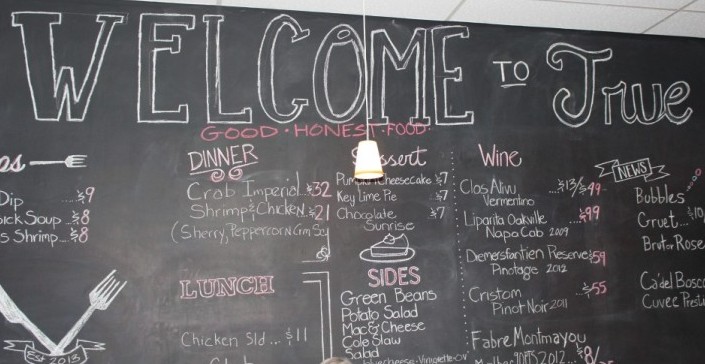 WELCOME TO True
GOOD · HONEST · FOOD ·
Dip ... $9
Soup ... $8
Shrimp ... $8
EST 2013
DINNER
Crab Imperial ... $32
Shrimp & Chicken $21
(Sherry, Peppercorn
LUNCH
Chicken Sld ... $11
Dessert
Pumpkin Cheesecake $7
Key Lime Pie $7
Chocolate $7
Sunrise
SIDES
Green Beans
Potato Salad
Mac & Cheese
Cole Slaw
Salad
Wine
Vermentino
Liparita Oakville ... $99
Napa Cab 2009
Reserve $59
Pinotage 2012
Cristom ... $55
Pinot Noir 2011
Fabre Montmayou
NEWS
Bubbles
Gruet ... $10
Brut or Rose
Ca'del Bosco
Cuvee